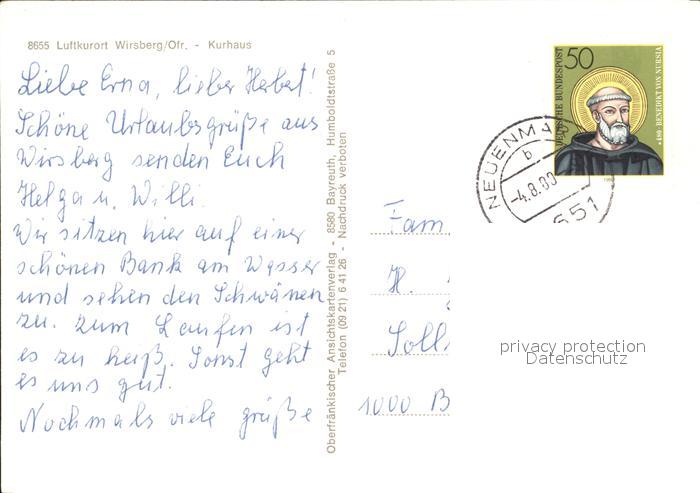 8655 Luftkurort Wirsberg/Ofr. - Kurhaus
Liebe Erna, lieber Herbert!
Schöne Urlaubsgrüße aus
Wirsberg senden Euch
Helga u. Willi.
Wir sitzen hier auf einer
schönen Bank am Wasser
und sehen den Schwänen
zu. Zum Laufen ist
es zu heiß. Sonst geht
es uns gut.
Nochmals viele grüße
Oberfränkischer Ansichtskartenverlag - 8580 Bayreuth, Humboldtstraße 5
Telefon (09 21) 6 41 26 - Nachdruck verboten
50
DEUTSCHE BUNDESPOST
*480 · BENEDIKT VON NURSIA
1980
NEUENMA
b
-4.8.80
651
Fam
H.
Soll
1000 B
privacy protection
Datenschutz